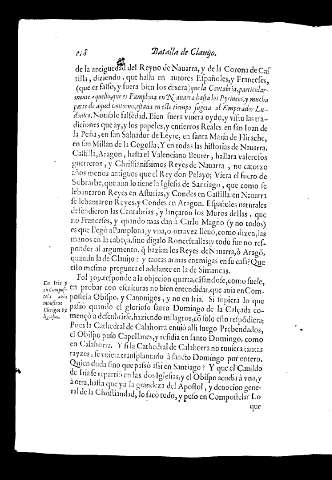 218 Batalla de Clauijo.
de la antiguedad del Reyno de Nauarra, y de la Corona de Cas
tilla, diziendo, que halla en autores Españoles, y Franceses,
(que es falso, y fuera bien los citara) que la Cantabria, particular-
mente aquello que es Pamplona en Nauarra hasta los Pyrineos, y mucha
parte de aquel contorno, estaua en este tiempo sugeta al Emperador Lu-
douico. Notable falsedad. Bien fuera vuiera oydo, y visto las tra-
diciones que ay, y los papeles, y entierros Reales en san Iuan de
la Peña, en san Saluador de Leyre, en santa Maria de Hirache,
en san Millan de la Cogolla, Y en todas las historias de Nauarra,
Castilla, Aragon, hasta el Valenciano Beuter, hallara valerosos
guerreros, y Christianissimos Reyes de Nauarra, no catorze
años menos antiguos que el Rey don Pelayo; Viera el fuero de
Sobrarbe, que aun lo tiene la Iglesia de Santiago, que como se
lebantaron Reyes en Asturias, y Condes en Castilla en Nauarra
se lebantaron Reyes, y Condes en Aragon. Españoles naturales
defendieron las Cantabrias, y lançaron los Moros dellas, que
no Franceses, y quando mas dan a Carlo Magno (y no todos)
es que llegó a Pamplona, y vna, o otra vez lleuó, como dizen, las
manos en la cabeça, sino digalo Roncesballes: y todo fue no res-
ponder al argumento, q̃ hazian los Reyes de Nauarra, ò Aragõ,
quando la de Clauijo? y tantas armas enemigas en su casa? Que
esto mesmo preguntè el adelante en la de Simancas.
Fol. 309. responde a la objecion quarta, cãsandose, como suele,
en probar con escrituras no bien entendidas, que auia en Com-
postela Obispo, y Canonigos, y no en Iria. Si supiera lo que
passo quando el glorioso santo Domingo de la Calçada co-
mençó a descubrirse, haziendo milagros, cõ solo esso respõdiera:
Pues la Cathedral de Calahorra enuiò alli luego Prebendados,
el Obispo puso Capellanes, y residia en santo Domingo, como
en Calahorra. Y si la Cathedral de Calahorra no tuuiera tantas
rayzes, se vuiera transplantado à santo Domingo por entero.
Quien duda sino que passó assi en Santiago? Y que el Cauildo
de Iria se repartio en las dos Iglesias, y el Obispo acudia à vna, y
à otra, hasta que ya la grandeza del Apostol, y deuocion gene-
ral de la Christiandad, lo sacó todo, y puso en Compostela? Lo
que
En Iria y
en Compos-
tela auia